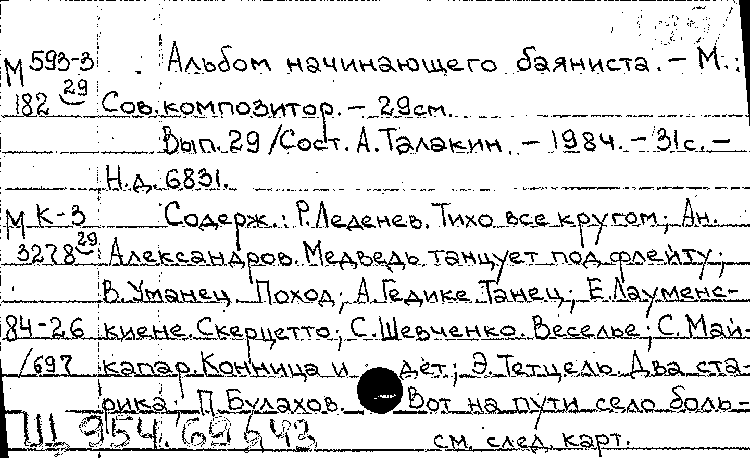 М 593-3 Альбом начинающего баяниста. – М.:
182 29 Сов. композитор. – 29см.
Вып. 29 /Сост. А. Талакин. – 1984. – 31с. –
Н.д. 6831.
М К-3 Содерж.: Р. Леденев. Тихо все кругом; Ан.
3278 29 Александров. Медведь танцует под флейту;
В. Уманец. Поход; А. Гедике. Танец; Е. Лауменс-
84-26 киене. Скерцетто; С. Шевченко. Веселье; С. Май-
/697 капар. Конница и дет; Э. Тетцель. Два ста-
рика; П. Булахов. Вот на пути село боль-
Щ 954.69543 см. след. карт.